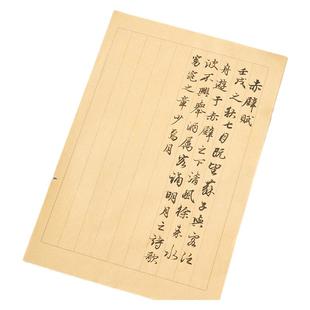 赤壁賦
壬戌之秋七月既望蘇子與客泛
舟遊于赤壁之下清風徐來水
波不興舉酒属客誦明月之詩歌
窈窕之章少焉月